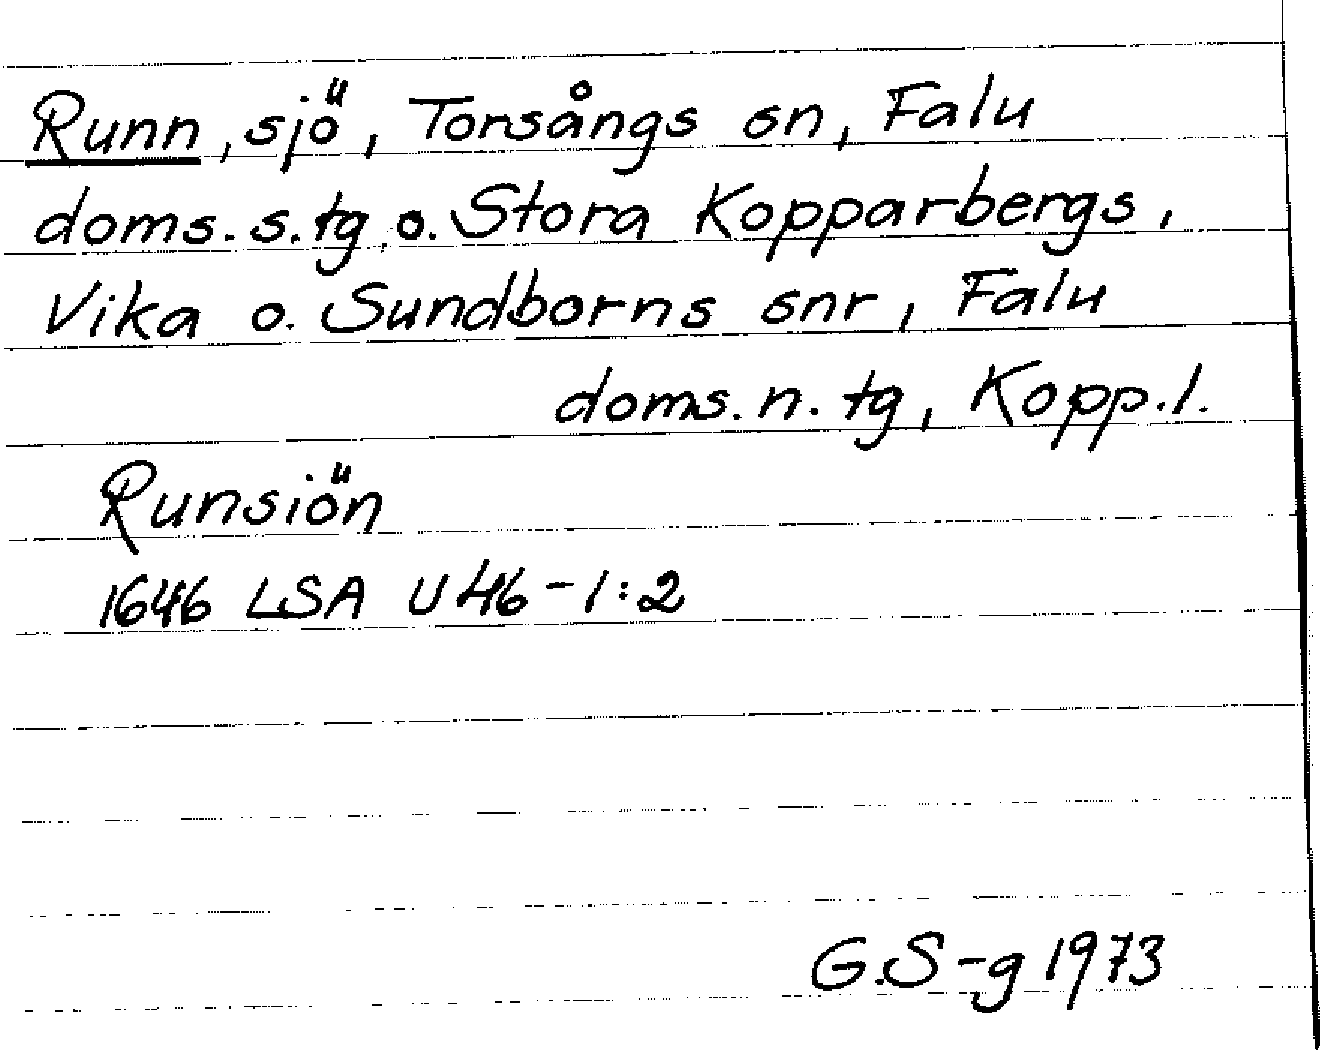 Runn, sjö, Torsångs sn, Falu
doms. s. tg. o. Stora Kopparbergs,
Vika o. Sundborns snr, Falu
doms. n. tg, Kopp. l.
Runsiön
1646 LSA U 46-1:2
G.S-g 1973